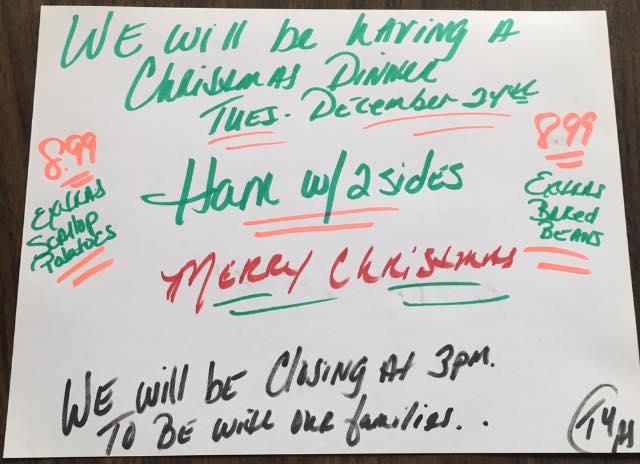 WE will be having A
Christmas Dinner
TUES. December 24th
8.99
EXTRAS
Scallop
Potatoes
Ham w/2 sides
8.99
EXTRAS
Baked
BEANS
MERRY Christmas
WE will be Closing At 3pm.
TO BE with our families...